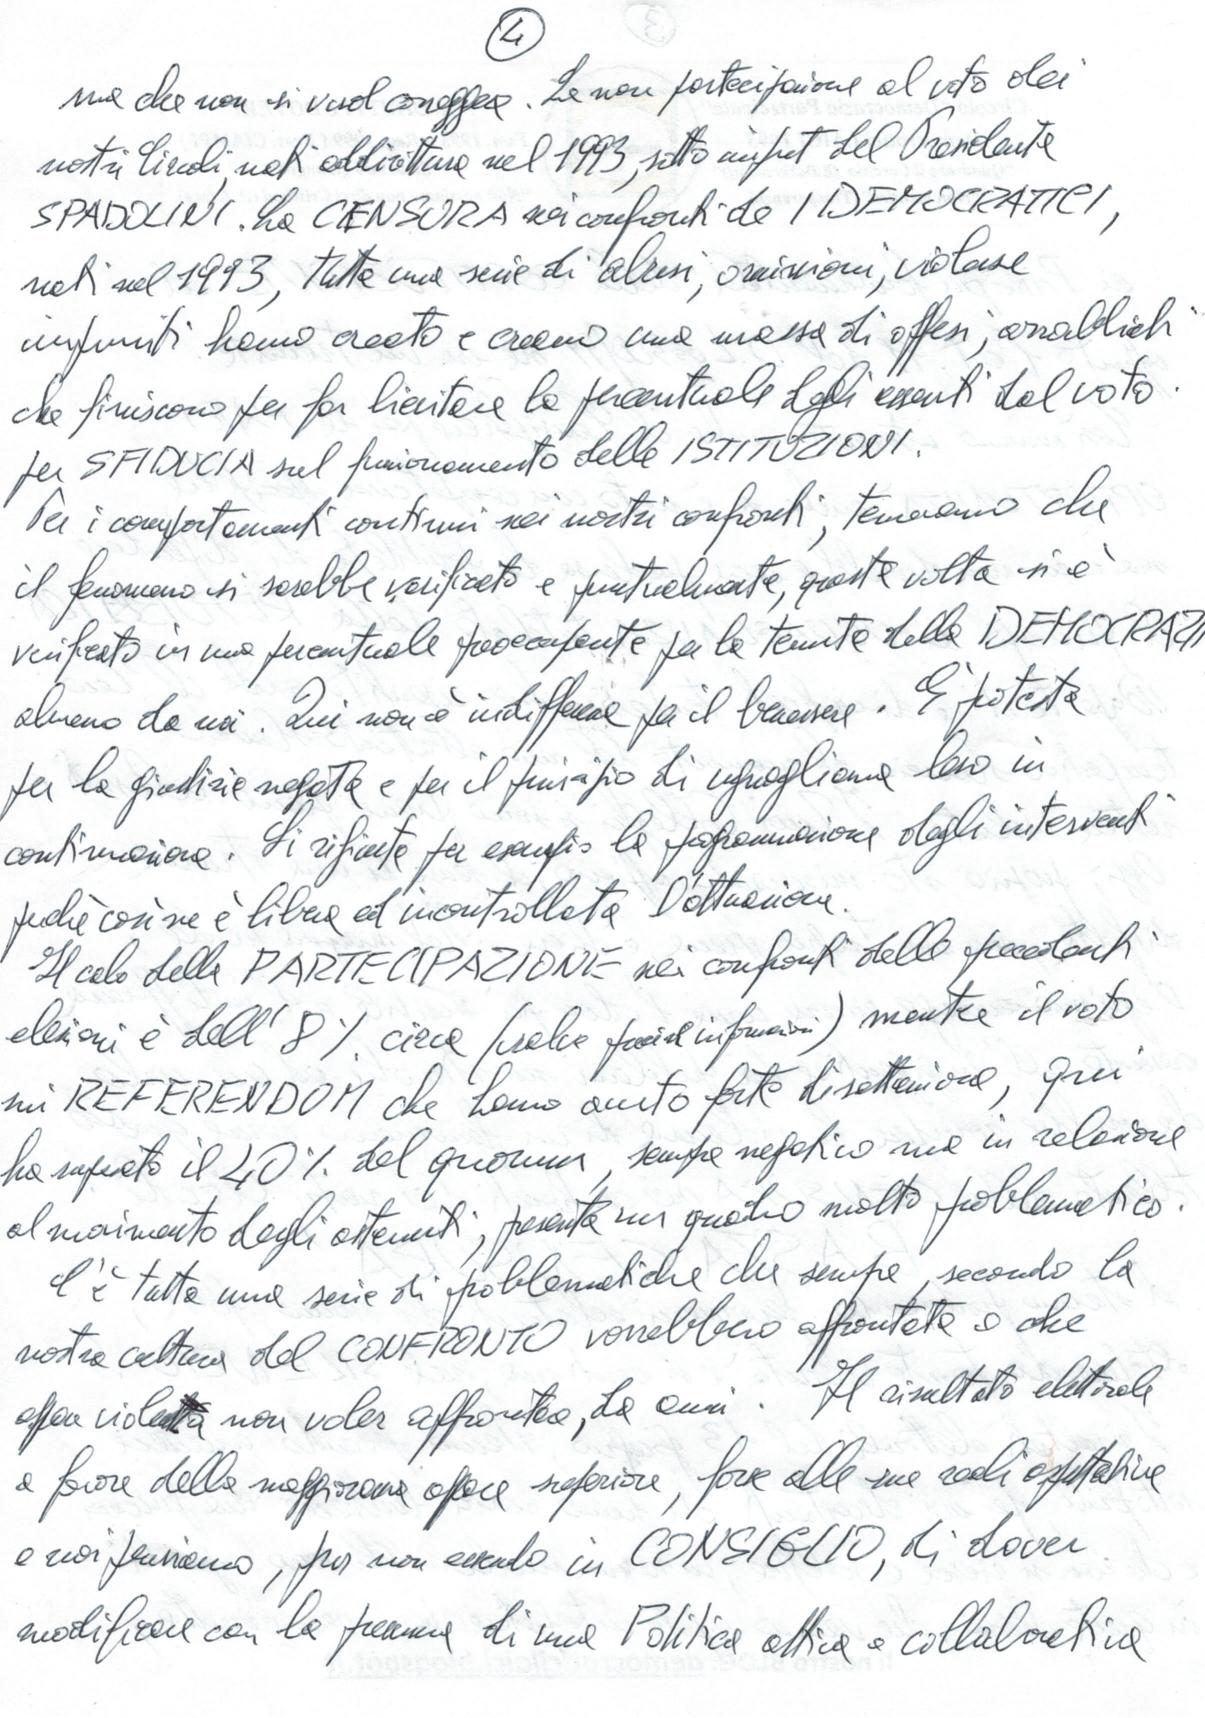 4
ma che non si vuol correggere. La non partecipazione al voto dei
nostri Circoli, nati addirittura nel 1993, sotto input del Presidente
SPADOLINI. La CENSURA nei confronti de I DEMOCRATICI,
nati nel 1993, tutta una serie di abusi, omissioni, violenze
impuniti hanno creato e creano una massa di offesi, arrabbiati
che finiscono per far lievitare la percentuale degli assenti dal voto.
per SFIDUCIA sul funzionamento delle ISTITUZIONI.
Per i comportamenti continui nei nostri confronti, temevamo che
il fenomeno si sarebbe verificato e puntualmente, questa volta si è
verificato in una percentuale preoccupante per la tenuta della DEMOCRAZI
almeno da noi. Qui non è indifferenza per il benessere. E' protesta
per la giustizia negata e per il principio di uguaglianza leso in
continuazione. Si rifiuta per esempio la programmazione degli interventi
perchè così ne è libera ed incontrollata l'attuazione.
Il calo della PARTECIPAZIONE nei confronti delle precedenti
elezioni è dell'8% circa (salvo precise informazioni) mentre il voto
sui REFERENDUM che hanno avuto forte disattenzione, qui
ha superato il 40% del quorum, sempre negativo ma in relazione
al movimento degli astenuti, presenta un quadro molto problematico.
C'è tutta una serie di problematiche che sempre, secondo la
nostra cultura del CONFRONTO vorrebbero affrontate e che
appare non voler affrontare, da anni. Il risultato elettorale
a favore della maggioranza appare superiore, forse alle sue reali aspettative
e noi pensiamo, pur non essendo in CONSIGLIO, di dover
modificare con la presenza di una Politica attiva e collaborativa